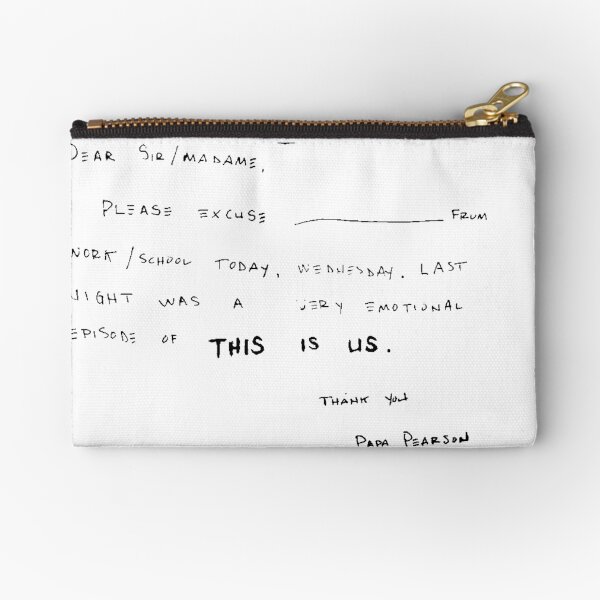 DEAR SIR/MADAME,
PLEASE EXCUSE ____________ FROM
WORK/SCHOOL TODAY, WEDNESDAY. LAST
NIGHT WAS A VERY EMOTIONAL
EPISODE OF THIS IS US.
THANK YOU
PAPA PEARSON